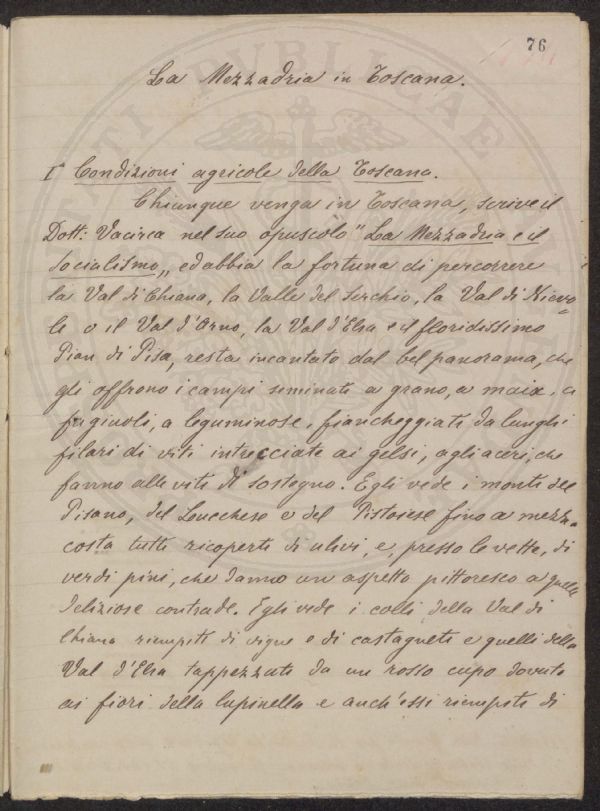 76
La Mezzadria in Toscana.
I° Condizioni agricole della Toscana.
Chiunque venga in Toscana, scrive il
Dott: Vacirca nel suo opuscolo "La Mezzadria e il
Socialismo„ ed abbia la fortuna di percorrere
la Val di Chiana, la Valle del Serchio, la Val di Nievo=
le o il Val d'Arno, la Val d'Elsa e il floridissimo
Pian di Pisa, resta incantato dal bel panorama, che
gli offrono i campi seminati a grano, a maix, a
fagiuoli, a leguminose, fiancheggiati da lunghi
filari di viti intrecciate ai gelsi, agli aceri, che
fanno alle viti di sostegno. Egli vede i monti del
Pisano, del Lucchese e del Pistoiese fino a mezza
costa tutti ricoperti di ulivi, e, presso le vette, di
verdi pini, che danno un aspetto pittoresco a quelle
deliziose contrade. Egli vede i colli della Val di
Chiana riempiti di vigne e di castagneti e quelli della
Val d'Elsa tappezzati da un rosso cupo dovuto
ai fiori della lupinella e anch'essi riempiti di